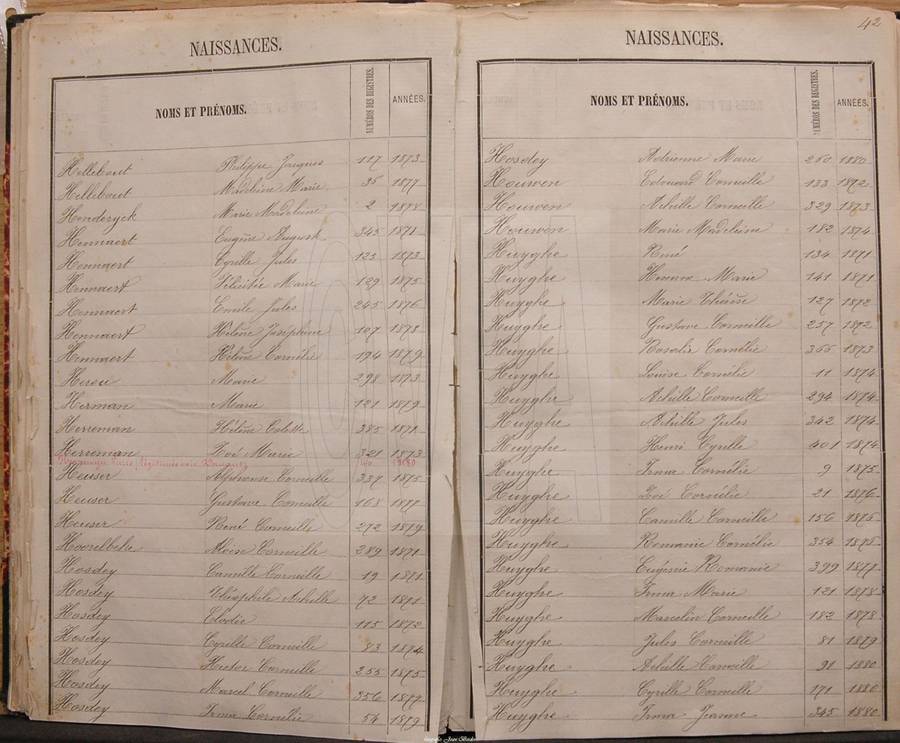 NAISSANCES.
NOMS ET PRÉNOMS. NUMÉROS DES REGISTRES. ANNÉES.
Hillebout Philippe Jacques 117 1873
Hillebout Madeleine Marie 35 1877
Henderyck Marie Madeleine 2 1878
Hennaert Eugène August 345 1871
Hennaert Cyrille Jules 123 1873
Hennaert Félicitée Marie 129 1875
Hennaert Emile Jules 245 1876
Hennaert Hélène Joséphine 107 1878
Hennaert Hélène Cornélie 194 1879
Hereu Marie 298 1873
Herman Marie 121 1879
Herreman Hélène Colette 385 1871
Herreman Zoé Marie 321 1873
Marie, légitimée
Heuser Alphonse Corneille 337 1875
Heuser Gustave Corneille 168 1877
Heuser René Corneille 272 1879
Hoorelbeke Aloïse Corneille 289 1871
Hosdey Camille Corneille 19 1871
Hosdey Théophile Achille 72 1871
Hosdey Elodie 115 1872
Hosdey Cyrille Corneille 83 1874
Hosdey Hector Corneille 255 1875
Hosdey Marcel Corneille 356 1877
Hosdey Irma Cornélie 54 1879
42
NAISSANCES.
NOMS ET PRÉNOMS. NUMÉROS DES REGISTRES. ANNÉES.
Hosdey Adrienne Marie 260 1880
Houwen Edouard Corneille 133 1872
Houwen Achille Corneille 329 1873
Houwen Marie Madeleine 182 1874
Huyghe René 134 1871
Huyghe Marie 141 1871
Huyghe Marie Thérèse 127 1872
Huyghe Gustave Corneille 257 1872
Huyghe Rosalie Cornélie 355 1873
Huyghe Louise Cornélie 11 1874
Huyghe Achille Corneille 294 1874
Huyghe Achille Jules 342 1874
Huyghe Henri Cyrille 401 1874
Huyghe Irma Cornélie 9 1875
Huyghe Zoé Cornélie 21 1876
Huyghe Camille Corneille 156 1876
Huyghe Romanie Cornélie 354 1876
Huyghe Eugénie Romanie 399 1877
Huyghe Irma Marie 121 1878
Huyghe Marcelin Corneille 182 1878
Huyghe Jules Corneille 81 1879
Huyghe Achille Corneille 91 1880
Huyghe Cyrille Corneille 171 1880
Huyghe Irma Jeanne 345 1880